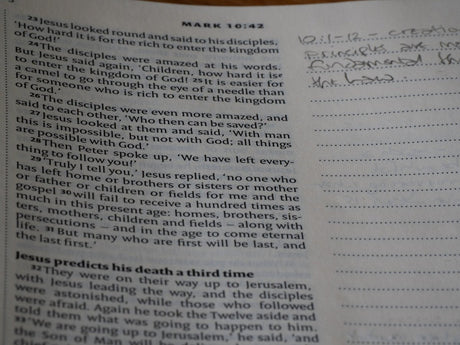 MARK 10:42
23 Jesus looked round and said to his disciples,
'How hard it is for the rich to enter the kingdom
of God!'
24 The disciples were amazed at his words.
But Jesus said again, 'Children, how hard it is
to enter the kingdom of God! 25 It is easier for
a camel to go through the eye of a needle than
for someone who is rich to enter the kingdom
of God.'
26 The disciples were even more amazed, and
said to each other, 'Who then can be saved?'
27 Jesus looked at them and said, 'With man
this is impossible, but not with God; all things
are possible with God.'
28 Then Peter spoke up, 'We have left every-
thing to follow you!'
29 'Truly I tell you,' Jesus replied, 'no one who
has left home or brothers or sisters or mother
or father or children or fields for me and the
gospel 30 will fail to receive a hundred times as
much in this present age: homes, brothers, sis-
ters, mothers, children and fields – along with
persecutions – and in the age to come eternal
life. 31 But many who are first will be last, and
the last first.'
Jesus predicts his death a third time
32 They were on their way up to Jerusalem,
with Jesus leading the way, and the disciples
were astonished, while those who followed
were afraid. Again he took the Twelve aside and
told them what was going to happen to him.
33 'We are going up to Jerusalem,' he said, 'and
the Son of Man will be
10:1-12 – creation
principles are more
the law